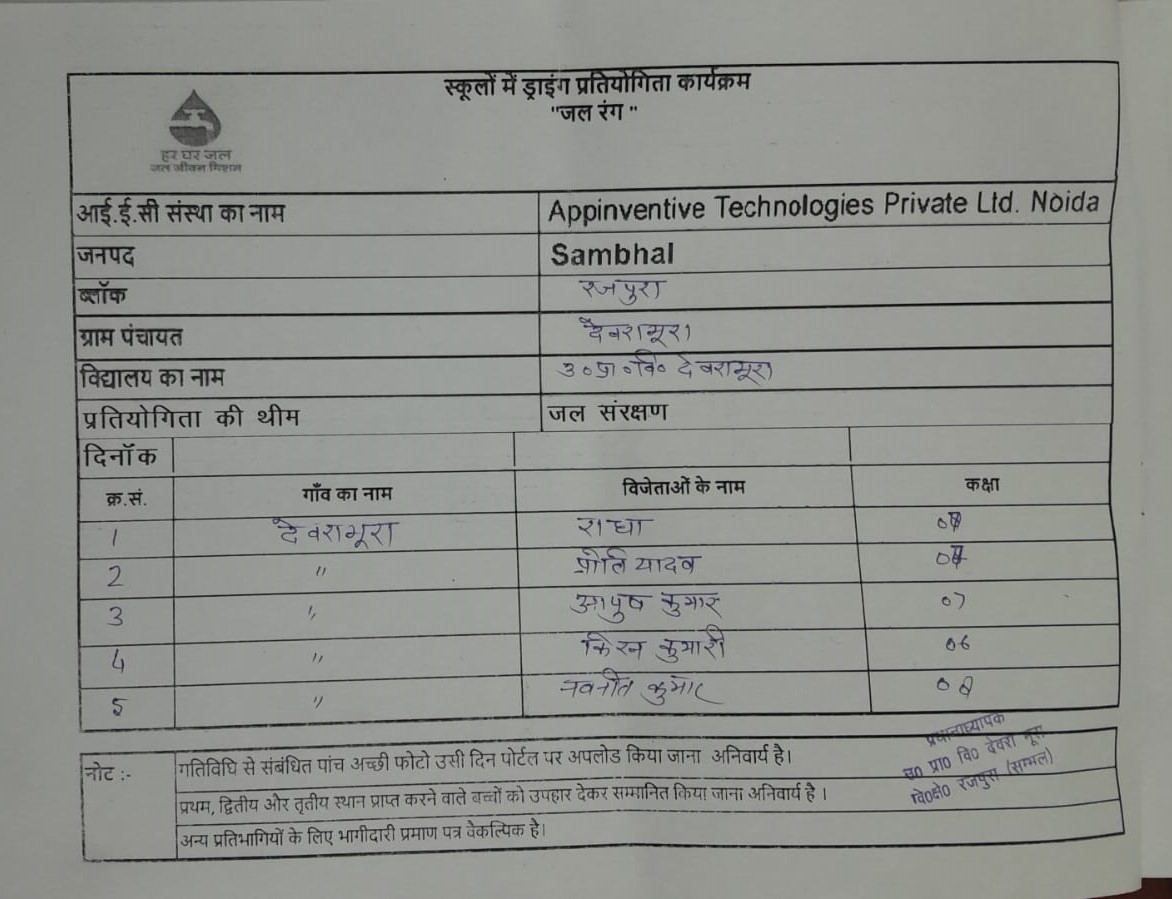 स्कूलों में ड्राइंग प्रतियोगिता कार्यक्रम
"जल रंग "
हर घर जल
जल जीवन मिशन
आई.ई.सी संस्था का नाम Appinventive Technologies Private Ltd. Noida
जनपद Sambhal
ब्लॉक रजपुरा
ग्राम पंचायत देवराभूरा
विद्यालय का नाम उ०प्रा०वि० देवराभूरा
प्रतियोगिता की थीम जल संरक्षण
दिनॉक
क्र.सं. गाँव का नाम विजेताओं के नाम कक्षा
1 देवराभूरा राधा
2 " प्रीति यादव
3 " आयुष कुमार 07
4 " किरन कुमारी 06
5 " नवनीत कुमार
नोट :- गतिविधि से संबंधित पांच अच्छी फोटो उसी दिन पोर्टल पर अपलोड किया जाना अनिवार्य है।
प्रथम, द्वितीय और तृतीय स्थान प्राप्त करने वाले बच्चों को उपहार देकर सम्मानित किया जाना अनिवार्य है ।
अन्य प्रतिभागियों के लिए भागीदारी प्रमाण पत्र वैकल्पिक है।
प्रधानाध्यापक
उ० प्रा० वि० देवरा भूरा
वि०क्षे० रजपुरा (सम्भल)